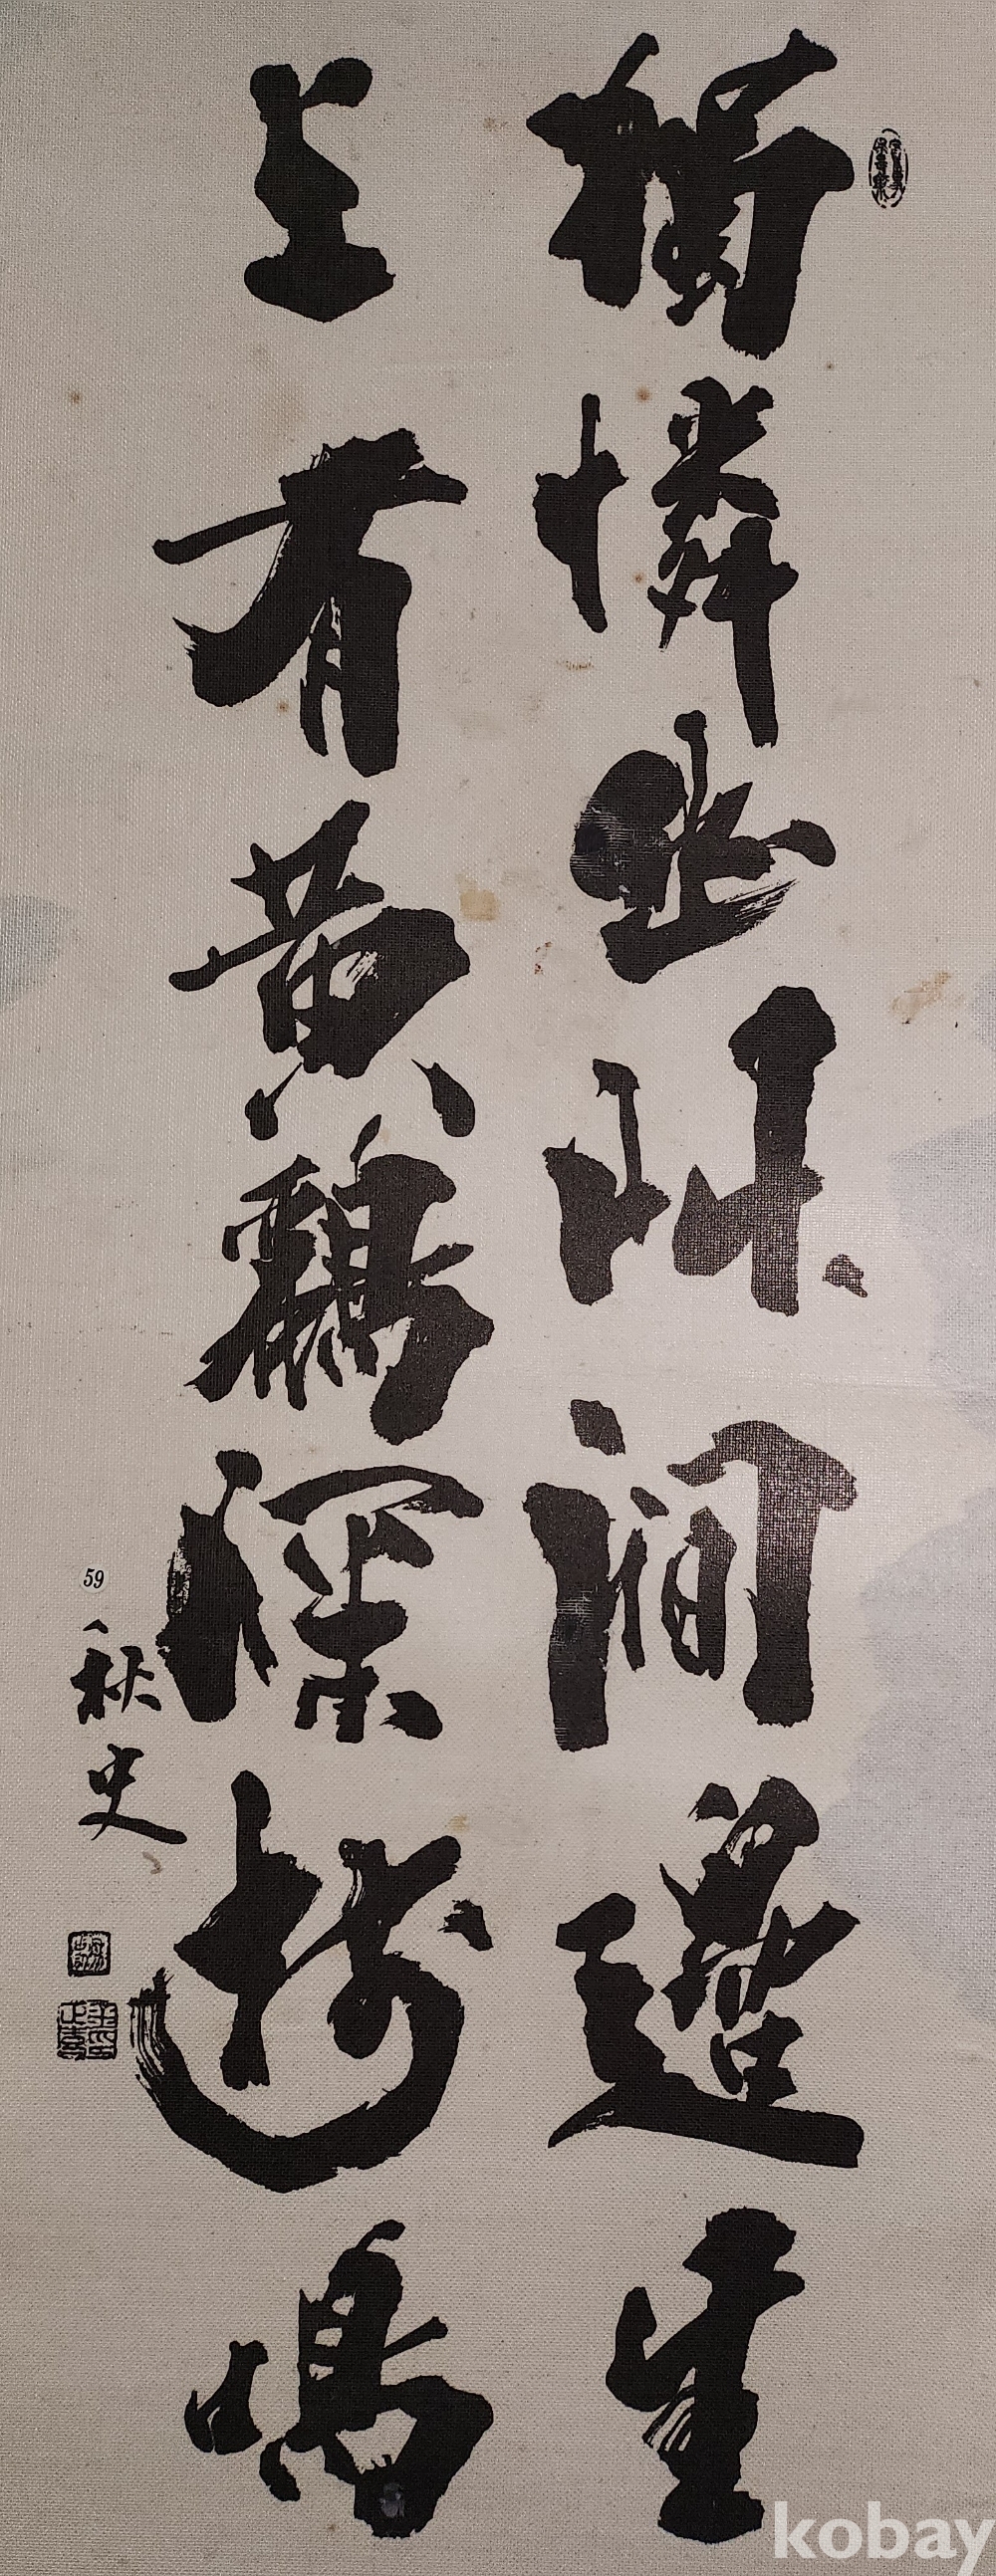 獨憐幽艸澗邊生
上有黃鸝深樹鳴
秋史
59
kobay